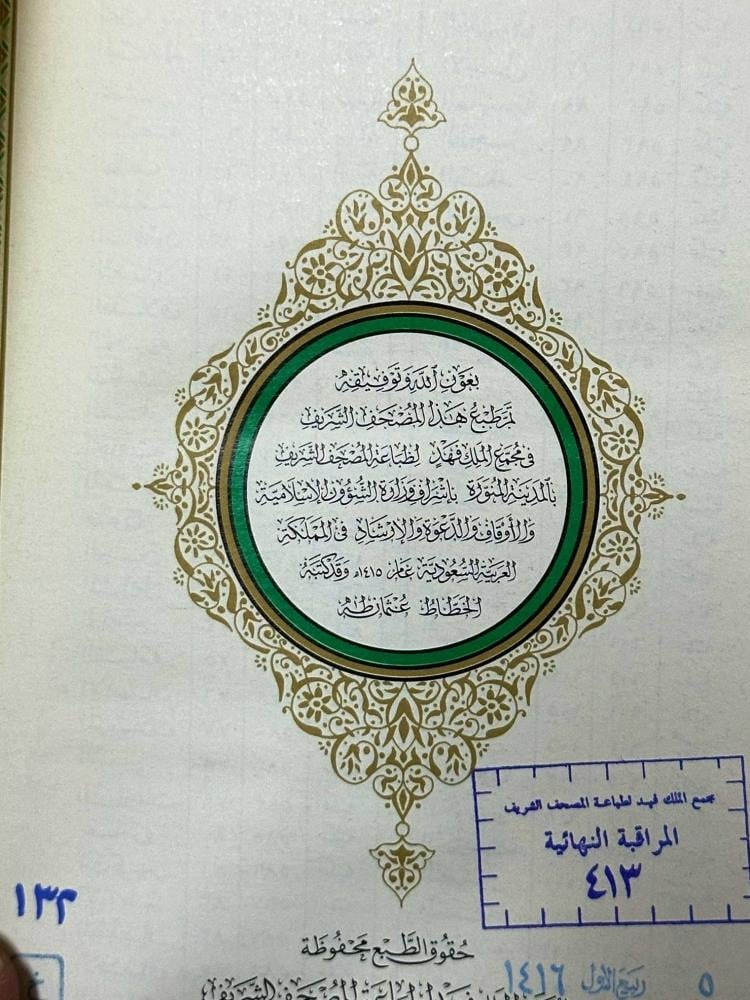 بعَوْنِ اللَّهِ وَتَوفِيقِهِ
تَمَّ طَبْعُ هَذَا المُصْحَفِ الشَّرِيفِ
فِي مُجَمَّعِ المَلِكِ فَهْدٍ لِطِبَاعَةِ المُصْحَفِ الشَّرِيفِ
بِالمَدِينَةِ المُنَوَّرَةِ بِإِشْرَافِ وَزَارَةِ الشُّؤُونِ الإِسْلَامِيَّةِ
وَالأَوْقَافِ وَالدَّعْوَةِ وَالإِرْشَادِ فِي المَمْلَكَةِ
العَرَبِيَّةِ السُّعُودِيَّةِ عَام ١٤١٥هـ وَقَدْ كَتَبَهُ
الخَطَّاطُ عُثْمَان طٰه
مجمع الملك فهد لطباعة المصحف الشريف
المراقبة النهائية
٤١٣
١٣٢
حُقُوقُ الطَّبْعِ مَحْفُوظَة
٥ ربيع الأول ١٤١٦
لطباعة المصحف الشريف